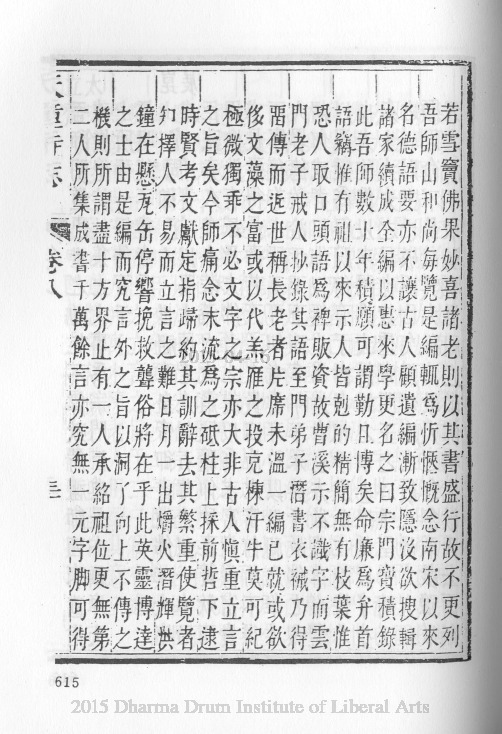 若雪竇佛果妙喜諸老則以其書盛行故不更列
吾師山和尚每覽是編輒爲忻愜慨念南宋以來
名德語要亦不讓古人顧遺編漸致隱沒欲搜輯
諸家續成全編以惠來學更名之曰宗門寶積錄
此吾師數十年積願可謂勤且博矣命廉爲弁首
語竊惟有祖以來示人皆剋的精簡無有枝葉惟
恐人取口頭語爲裨販資故曹溪示不識字而雲
門老子戒人抄錄其語至門弟子潛書衣裓乃得
畱傳而近世稱長老者片席未溫一編已就或欲
侈文藻之富或以代羔雁之投充棟汗牛莫可紀
極微獨乖不必文字之宗亦大非古人愼重立言
之旨矣今師痛念末流爲之砥柱上採前哲下逮
時賢考文獻定指歸約其訓辭去其繁重使覽者
知擇人不易而立言之難日月一出爝火潛輝洪
鐘在懸瓦缶停響挽救聾俗將在乎此英靈博達
之士由是編而究言外之旨以洞了向上不傳之
機則所謂盡十方界止有一人承紹祖位更無第
二人所集成書千萬餘言亦究無一元字脚可得
天童寺志
卷八
615
2015 Dharma Drum Institute of Liberal Arts